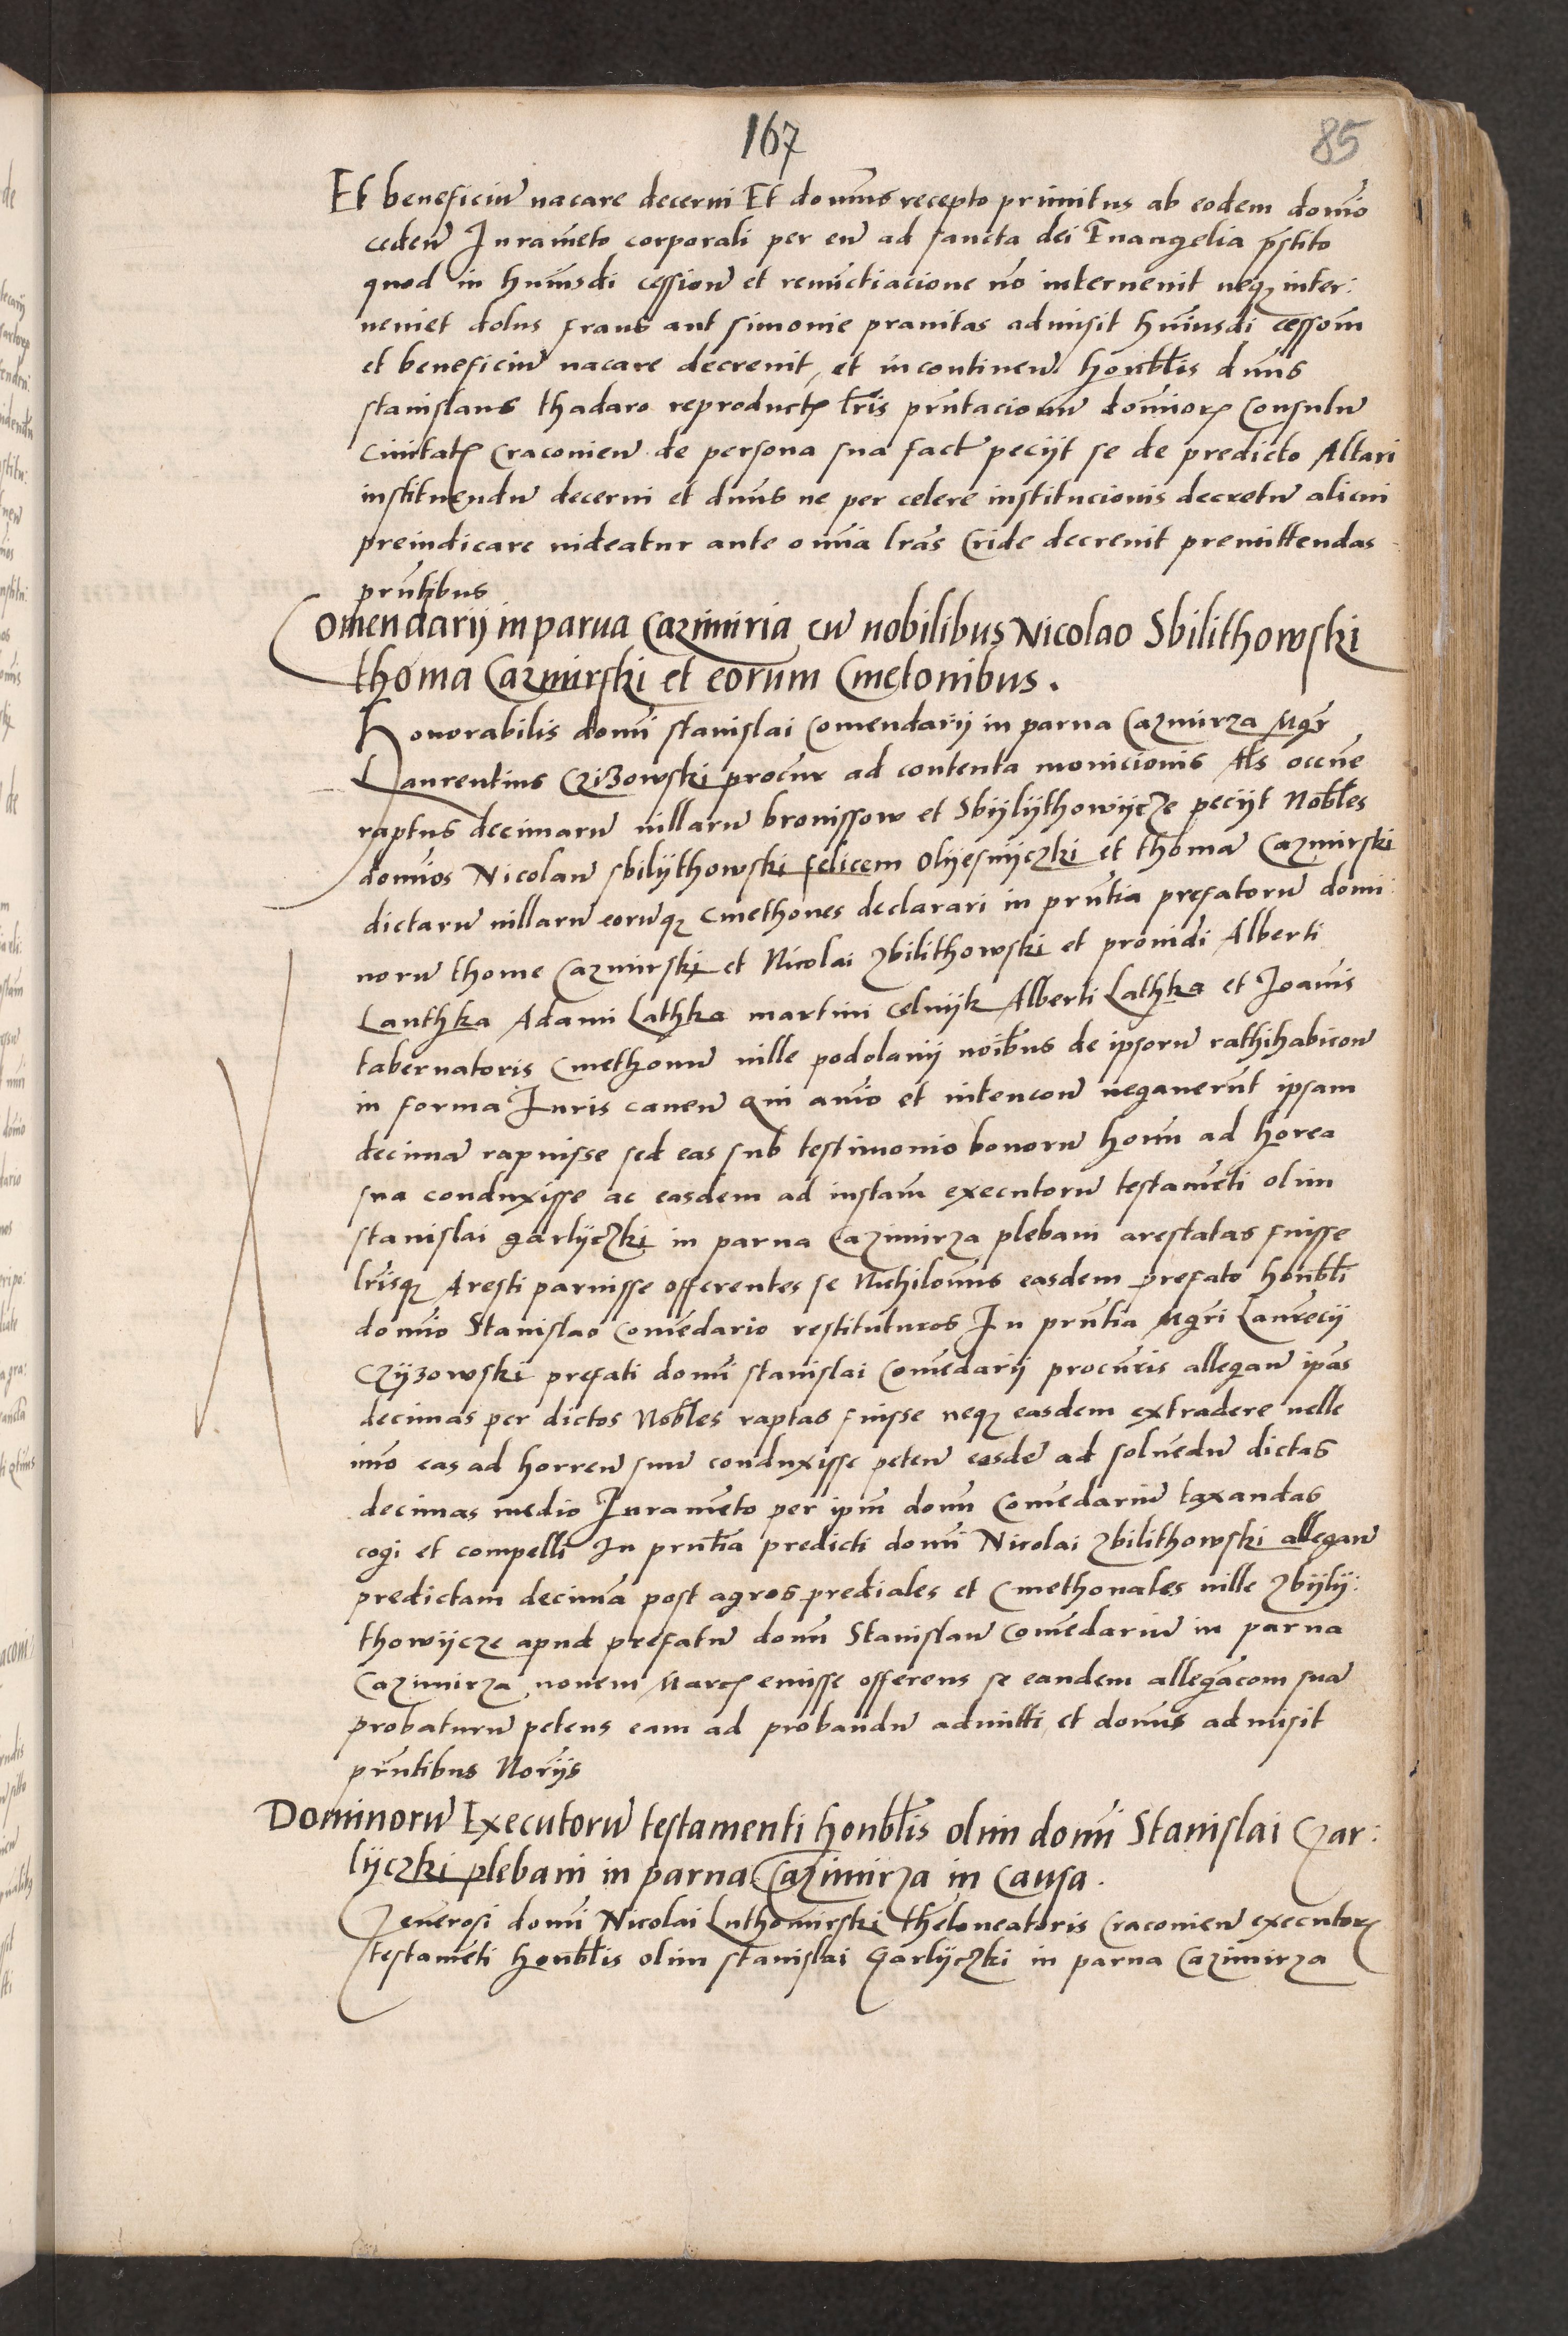 167
85
Et beneficiu vacare decerni Et domus recepto primitus ab eodem domo
ceden Iurameto corporali per eu ad sancta dei Euangelia pstito
quod in huiusdi cession et renuctiacione no interuenit neqz inter:
ueniet dolus fraus aut simonie prauitas admisit huiusdi cessom
et beneficiu vacare decreuit, et incontinen honblis dnus
stanislaus thadaro reproductz lris pntacionu domorz Consulu
Ciuitatz Craconien de persona sua fact peciyt se de predicto Altari
instituendu decerni et dnus ne per celere institucionis decretu alicui
preiudicare uideatur ante omia lras Cride decreuit premittendas
pntibus
Comendarij in parua Cazimiria cu nobilibus Nicolao Sbilithowski
thoma Cazmirski et eorum Cmetonibus.
Honorabilis domi stanislai Comendarij in parua Cazmirza Mgr
Laurentius Czizowski procur ad contenta monicionis Als occne
raptus decimaru uillaru bronissow et Sbijlijthowijcze peciyt Nobles
domos Nicolau sbilijthowski felicem Olijesnijczki et thoma Cazmirski
dictaru uillaru eoruqz cmethones declarari in pntia prefatoru domi:
noru thome Cazmirski et Nicolai Zbilithowski et prouidi Alberti
Lanthka Adami Lathka martini Celnijk Alberti Lathka et Joanis
tabernatoris Cmethonu uille podolanij noibus de ipsoru rathihabicon
in forma Iuris cauen Qui anio et intencon negauerunt ipsam
decima rapuisse sed eas sub testimonio bonoru homi ad horea
sua conduxisse ac easdem ad instam executoru testameti olim
stanislai garlijczki in parua Cazimirza plebani arestatas fuisse
lrisqz Aresti paruisse offerentes se Nichilomus easdem prefato honbli
domo Stanislao Comedario restituturos In pntia Mgri Laurecij
Czijzowski prefati domi stanislai Comedarij procuris allegan ipas
decimas per dictos Nobles raptas fuisse neqz easdem extradere uelle
imo eas ad horreu suu conduxisse peten eosde ad soluedu dictas
decimas medio Iurameto per ipm dom Comedariu taxandas
cogi et compelli In pntia predicti domi Nicolai Zbilithowski allegan
predictam decima post agros prediales et Cmethonales uille Zbijlij:
thowijcze apud prefatu dom Stanislau Comedariu in parua
Cazimirza nouem Marcz emisse offerens se eandem allegacom sua
probaturu petens eam ad probandu admitti et domus admisit
pntibus Norijs
Dominoru Executoru testamenti honblis olim domi Stanislai Gar:
lijczki plebani in parua Cazimirza in Causa.
Generosi domi Nicolai Luthomirski theloneatoris Craconien executorz
testameti honblis olim stanislai Garlijczki in parua Cazimirza